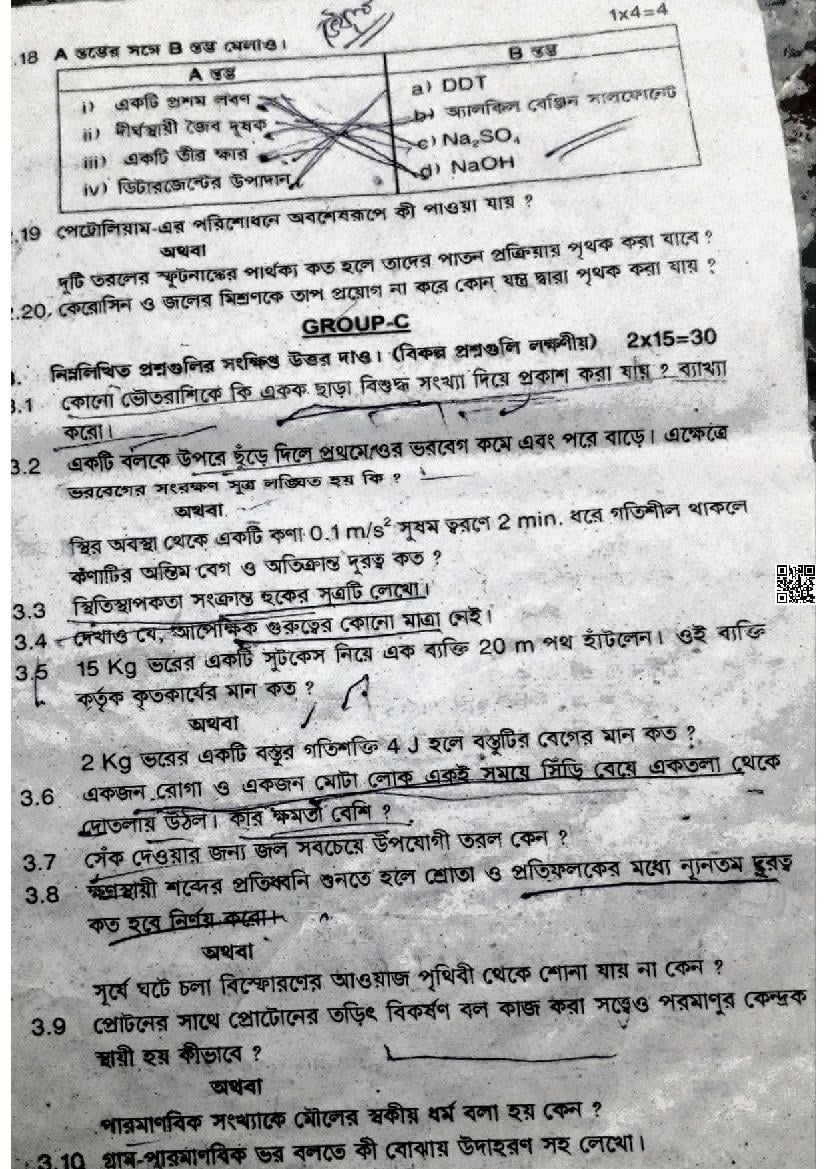 1x4=4
.18 A স্তম্ভের সঙ্গে B স্তম্ভ মেলাও।
A স্তম্ভ
B স্তম্ভ
i) একটি প্রশম লবণ
a) DDT
ii) দীর্ঘস্থায়ী জৈব দূষক
b) অ্যালকিল বেঞ্জিন সালফোনেট
iii) একটি তীব্র ক্ষার
c) Na₂SO₄
iv) ডিটারজেন্টের উপাদান
d) NaOH
.19 পেট্রোলিয়াম-এর পরিশোধনে অবশেষরূপে কী পাওয়া যায় ?
অথবা
দুটি তরলের স্ফুটনাঙ্কের পার্থক্য কত হলে তাদের পাতন প্রক্রিয়ায় পৃথক করা যাবে ?
.20. কেরোসিন ও জলের মিশ্রণকে তাপ প্রয়োগ না করে কোন যন্ত্র দ্বারা পৃথক করা যায় ?
GROUP-C
নিম্নলিখিত প্রশ্নগুলির সংক্ষিপ্ত উত্তর দাও। (বিকল্প প্রশ্নগুলি লক্ষণীয়) 2x15=30
3.1 কোনো ভৌতরাশিকে কি একক ছাড়া বিশুদ্ধ সংখ্যা দিয়ে প্রকাশ করা যায় ? ব্যাখ্যা
করো।
3.2 একটি বলকে উপরে ছুঁড়ে দিলে প্রথমে ওর ভরবেগ কমে এবং পরে বাড়ে। এক্ষেত্রে
ভরবেগের সংরক্ষণ সূত্র লঙ্ঘিত হয় কি ?
অথবা
স্থির অবস্থা থেকে একটি কণা 0.1 m/s² সুষম ত্বরণে 2 min. ধরে গতিশীল থাকলে
কণাটির অন্তিম বেগ ও অতিক্রান্ত দূরত্ব কত ?
3.3 স্থিতিস্থাপকতা সংক্রান্ত হুকের সূত্রটি লেখো।
3.4 দেখাও যে, আপেক্ষিক গুরুত্বের কোনো মাত্রা নেই।
3.5 15 Kg ভরের একটি সুটকেস নিয়ে এক ব্যক্তি 20 m পথ হাঁটলেন। ওই ব্যক্তি
কর্তৃক কৃতকার্যের মান কত ?
অথবা
2 Kg ভরের একটি বস্তুর গতিশক্তি 4 J হলে বস্তুটির বেগের মান কত ?
3.6 একজন রোগা ও একজন মোটা লোক একই সময়ে সিঁড়ি বেয়ে একতলা থেকে
দোতলায় উঠল। কার ক্ষমতা বেশি ?
3.7 সেঁক দেওয়ার জন্য জল সবচেয়ে উপযোগী তরল কেন ?
3.8 ক্ষণস্থায়ী শব্দের প্রতিধ্বনি শুনতে হলে শ্রোতা ও প্রতিফলকের মধ্যে ন্যূনতম দূরত্ব
কত হবে নির্ণয় করো।
অথবা
সূর্যে ঘটে চলা বিস্ফোরণের আওয়াজ পৃথিবী থেকে শোনা যায় না কেন ?
3.9 প্রোটনের সাথে প্রোটোনের তড়িৎ বিকর্ষণ বল কাজ করা সত্ত্বেও পরমাণুর কেন্দ্রক
স্থায়ী হয় কীভাবে ?
অথবা
পারমাণবিক সংখ্যাকে মৌলের স্বকীয় ধর্ম বলা হয় কেন ?
3.10 গ্রাম-পারমাণবিক ভর বলতে কী বোঝায় উদাহরণ সহ লেখো।